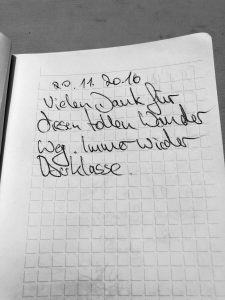 20.11.2016
Vielen Dank für
diesen tollen Wander
Weg. Immer wieder
Oberklasse.